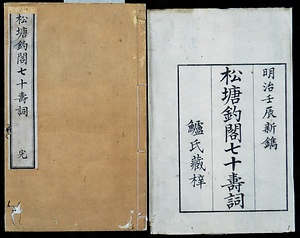 松塘釣閣七十壽詞 完
明治壬辰新鐫
松塘釣閣七十壽詞
鱸氏藏梓